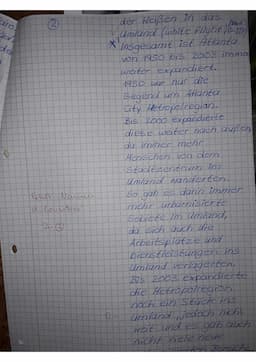 ②
der Weißen in das
Umland (white flight)
Insgesamt ist Atlanta
von 1950 bis 2003 immer
weiter expandiert.
1950 war nur die
Gegend um Atlanta
City Metropolregion.
Bis 2000 expandierte
diese weiter nach außen
da immer mehr
Menschen von dem
Stadtzentrum ins
Umland wanderten.
So gab es dann immer
mehr urbanisierte
Gebiete im Umland,
da sich auch die
Arbeitsplätze und
Dienstleistungen ins
Umland verlagerten.
Bis 2003 expandierte
die Metropolregion
noch ein Stück ins
Umland, jedoch nicht
weit und es gab auch
nicht viele neue